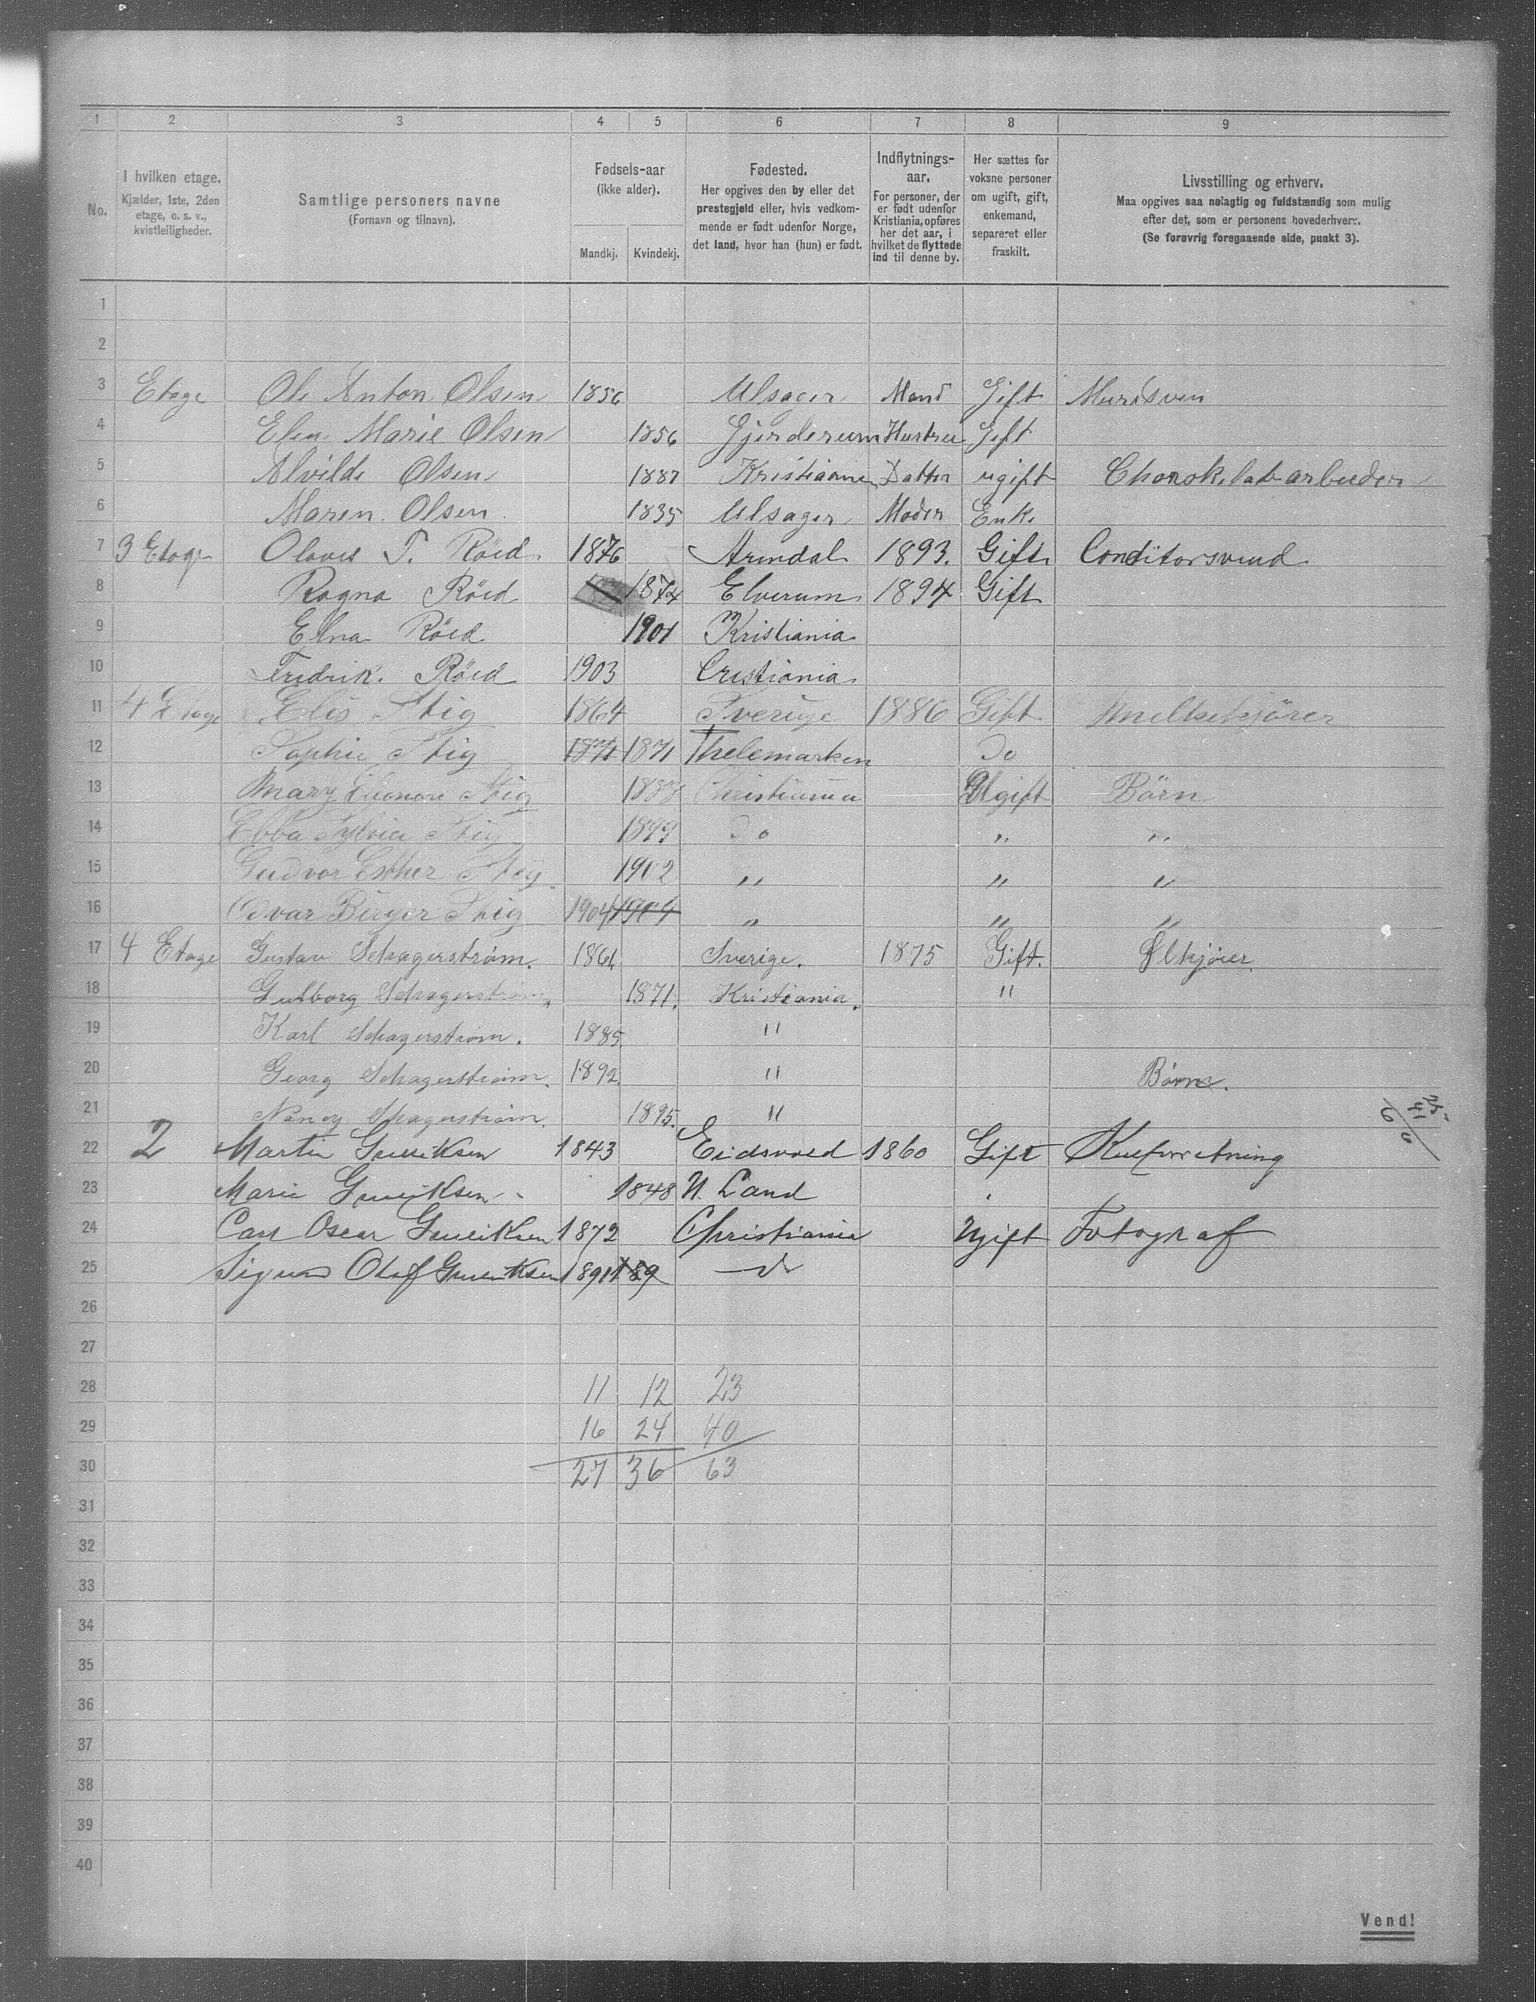 1 2 3 4 5 6 7 8 9
No.
I hvilken etage. Kjælder, 1ste, 2den etage, o. s. v., kvistleiligheder.
Samtlige personers navne (Fornavn og tilnavn).
Fødsels-aar (ikke alder). Mandkj. Kvindekj.
Fødested. Her opgives den by eller det prestegjeld eller, hvis vedkommende er født udenfor Norge, det land, hvor han (hun) er født.
Indflytnings-aar. For personer, der er født udenfor Kristiania, opføres her det aar, i hvilket de flyttede ind til denne by.
Her sættes for voksne personer om ugift, gift, enkemand, separeret eller fraskilt.
Livsstilling og erhverv. Maa opgives saa nøiagtig og fuldstændig som mulig efter det, som er personens hovederhverv. (Se forøvrig foregaaende side, punkt 3).
1
2
3 Etage Ole Anton Olsen 1856 Ulsager Mand Gift Mursven
4 Elen Marie Olsen 1856 Gjerderum Hustru Gift
5 Alvilde Olsen 1887 Kristiania Datter ugift
6 Maren Olsen 1835 Ulsager Moder Enke
7 3 Etage Olaves T. Röed 1876 Arendal 1893. Gift Conditorsvend
8 Ragna Röed 1874 Elverum 1894 Gift
9 Elna Röed 1901 Kristiania
10 Fredrik. Röed 1903 Cristiania
11 4 Etage Elis Stig 1864 Sverige 1886 Gift Melkekjører
12 Sophie Stig 1871 1871 Thelemarken Do
13 Mary Eleonore Stig Christiania Ugift Børn
14 Ebba Sylvia Stig 1899 Do " "
15 Gudvor Esther Stig 1902 " " "
16 Odvar Birger Stig 1904 1904 " " "
17 4 Etage Gustav Schagerstrøm. 1861 Sverige. 1875 Gift. Ølkjører
18 Gulborg Schagerstrøm. 1871. Kristiania. "
19 Karl Schagerstrøm. 1885. "
20 Georg Schagerstrøm. 1892. " Børn.
21 Nancy Schagerstrøm. 1895. "
22 2 Martin 1843 Eidsvold 1860 Gift Kulforretning
23 Marie 1848 N. Land
24 Carl Oscar 1872 Christiania Ugift Fotograf
25 Sigurd Olaf 1891 189 do
26
27
28 11 12 23
29 16 24 40
30 27 36 63
31
32
33
34
35
36
37
38
39
40
Vend!